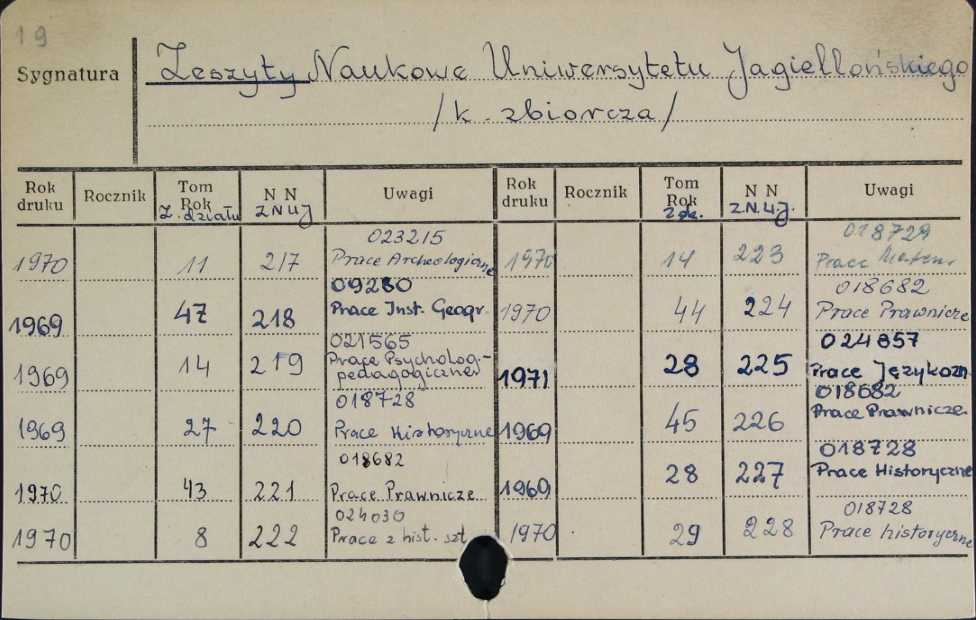 19
Sygnatura
Zeszyty Naukowe Uniwersytetu Jagiellońskiego
/k. zbiorcza/
Rok druku Rocznik Tom Rok Z. działu N N ZNUJ Uwagi
1970 11 217 023215 Prace Archeologiczne
1969 47 218 09280 Prace Inst. Geogr.
1969 14 219 021565 Prace Psycholog.-pedagogiczne
1969 27 220 018728 Prace Historyczne
1970 43 221 018682 Prace Prawnicze
1970 8 222 024030 Prace z hist. szt
Rok druku Rocznik Tom Rok Z. dz. N N Z.N.U.J. Uwagi
1970 14 223 018729 Prace Matem.
1970 44 224 018682 Prace Prawnicze
1971 28 225 024857 Prace Językozn.
1969 45 226 018682 Prace Prawnicze.
1969 28 227 018728 Prace Historyczne
1970 29 228 018728 Prace historyczne